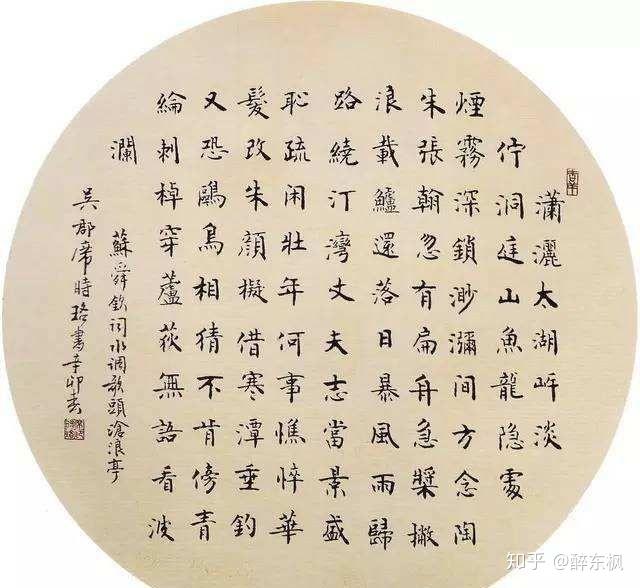 瀟灑太湖岸淡
佇洞庭山魚龍隐處
煙霧深鎖渺瀰間方念陶
朱張翰忽有扁舟急槳撇
浪載鱸還落日暴風雨歸
路繞汀灣丈夫志當景盛
恥疏闲壯年何事憔悴華
髮改朱顏擬借寒潭垂釣
又恐鷗鳥相猜不肯傍青
綸刺棹穿蘆荻無語看波
瀾
蘇舜欽詞水调歌頭滄浪亭
吳郡席時珞書辛卯春
知乎 @醉东枫